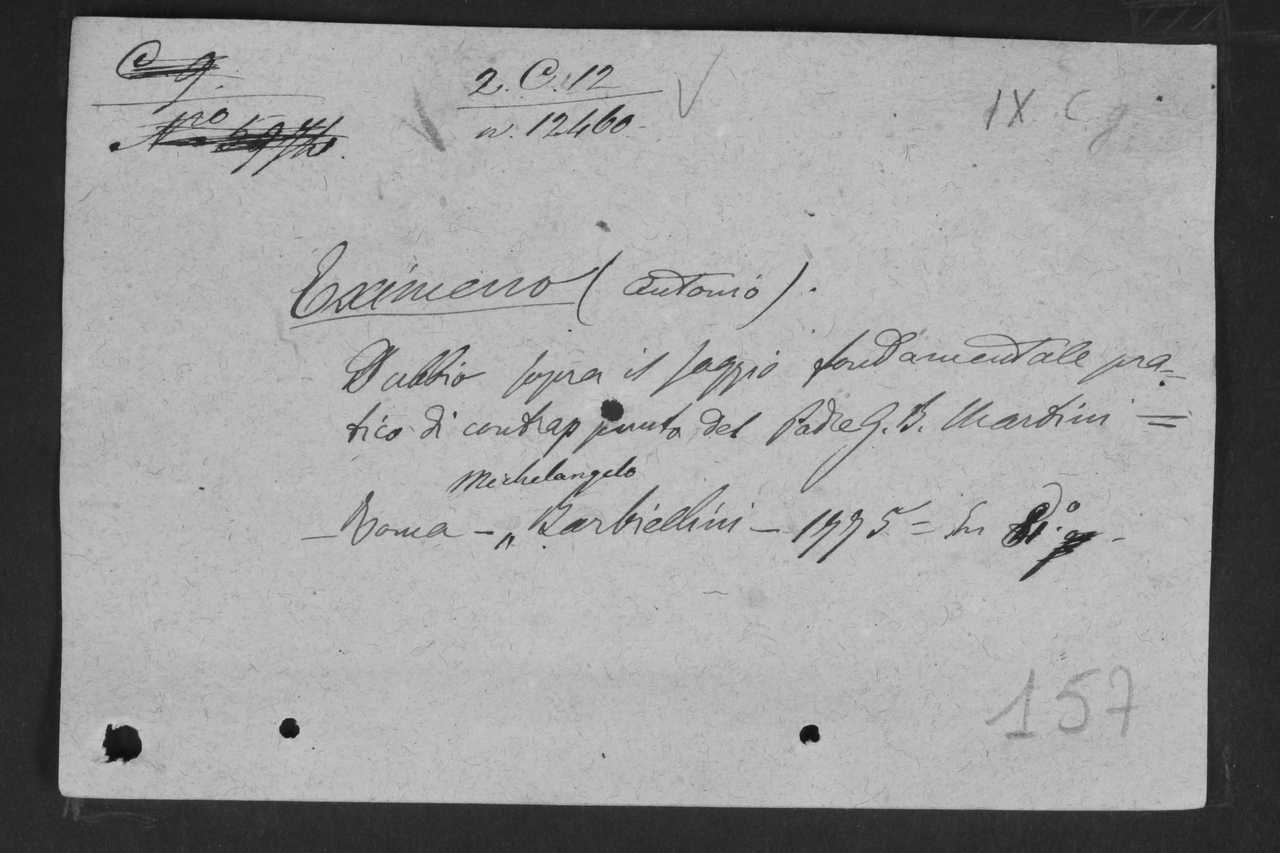 C g.
2. C. 12
IX. C. g.
Nro
n. 12460
Eximeno (Antonio).
Dubbio sopra il saggio fondamentale pra-
tico di contrappunto del Padre G. B. Martini =
Michelangelo
- Roma - „ Barbiellini - 1775 = In
157